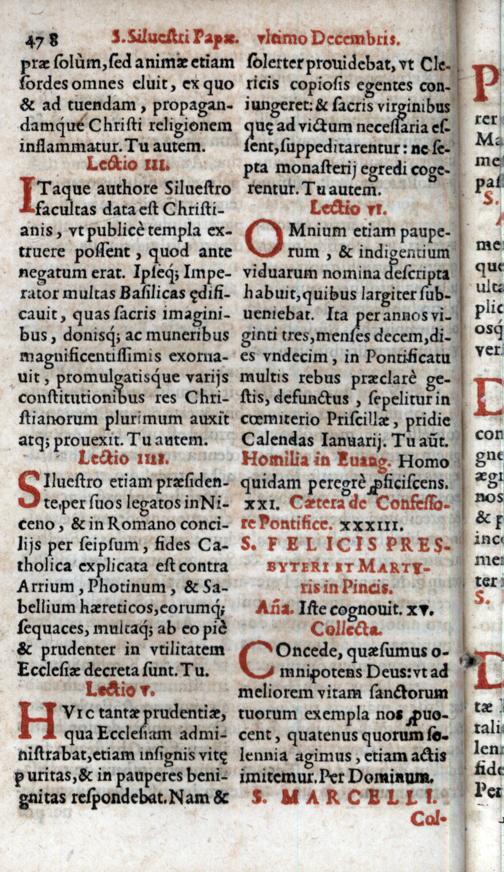 478 S. Silueſtri Papæ. vltimo Decembris.
præ ſolùm, ſed animæ etiam
ſordes omnes eluit, ex quo
& ad tuendam, propagan-
damq́ue Chriſti religionem
inflammatur. Tu autem.
Lectio III.
ITaque authore Silueſtro
facultas data eſt Chriſti-
anis, vt publicè templa ex-
truere poſſent, quod ante
negatum erat. Ipſeq; Impe-
rator multas Baſilicas ędifi-
cauit, quas ſacris imagini-
bus, donisq; ac muneribus
magnificentiſſimis exorna-
uit, promulgatisque varijs
conſtitutionibus res Chri-
ſtianorum plurimum auxit
atq; prouexit. Tu autem.
Lectio IIII.
SIlueſtro etiam præſiden-
te, per ſuos legatos in Ni-
ceno, & in Romano conci-
lijs per ſeipſum, fides Ca-
tholica explicata eſt contra
Arrium, Photinum, & Sa-
bellium hæreticos, eorumq;
ſequaces, multaq; ab eo piè
& prudenter in vtilitatem
Eccleſiæ decreta ſunt. Tu.
Lectio V.
HVIC tantæ prudentiæ,
qua Eccleſiam admi-
niſtrabat, etiam inſignis vitę
puritas, & in pauperes beni-
gnitas reſpondebat. Nam &
ſolerter prouidebat, vt Cle-
ricis copioſis egentes con-
iungeret: & ſacris virginibus
quę ad victum neceſſaria eſ-
ſent, ſuppeditarentur: ne ſe-
pta monaſterij egredi coge-
rentur. Tu autem.
Lectio VI.
OMnium etiam paupe-
rum, & indigentium
viduarum nomina deſcripta
habuit, quibus largiter ſub-
ueniebat. Ita per annos vi-
ginti tres, menſes decem, di-
es vndecim, in Pontificatu
multis rebus præclarè ge-
ſtis, defunctus, ſepelitur in
cœmiterio Priſcillæ, pridie
Calendas Ianuarij. Tu aũt.
Homilia in Euang. Homo
quidam peregrè ꝓficiſcens.
XXI. Cætera de Confeſſo-
re Pontifice. XXXIII.
S. FELICIS PRES-
BYTERI ET MARTY-
ris in Pincis.
Aña. Iſte cognouit. XV.
Collecta.
COncede, quæſumus o-
mnipotens Deus: vt ad
meliorem vitam ſanctorum
tuorum exempla nos ꝓuo-
cent, quatenus quorum ſo-
lennia agimus, etiam actis
imitemur. Per Dominum.
S. MARCELLI.
Col-
P
rer
Ma
me
paſ
S.
me
que
ulta
plic
osq
ver
D
con
gne
ægr
nos
& p
inc
me
ter
S.
D
tæ
tali
lenn
fide
Per